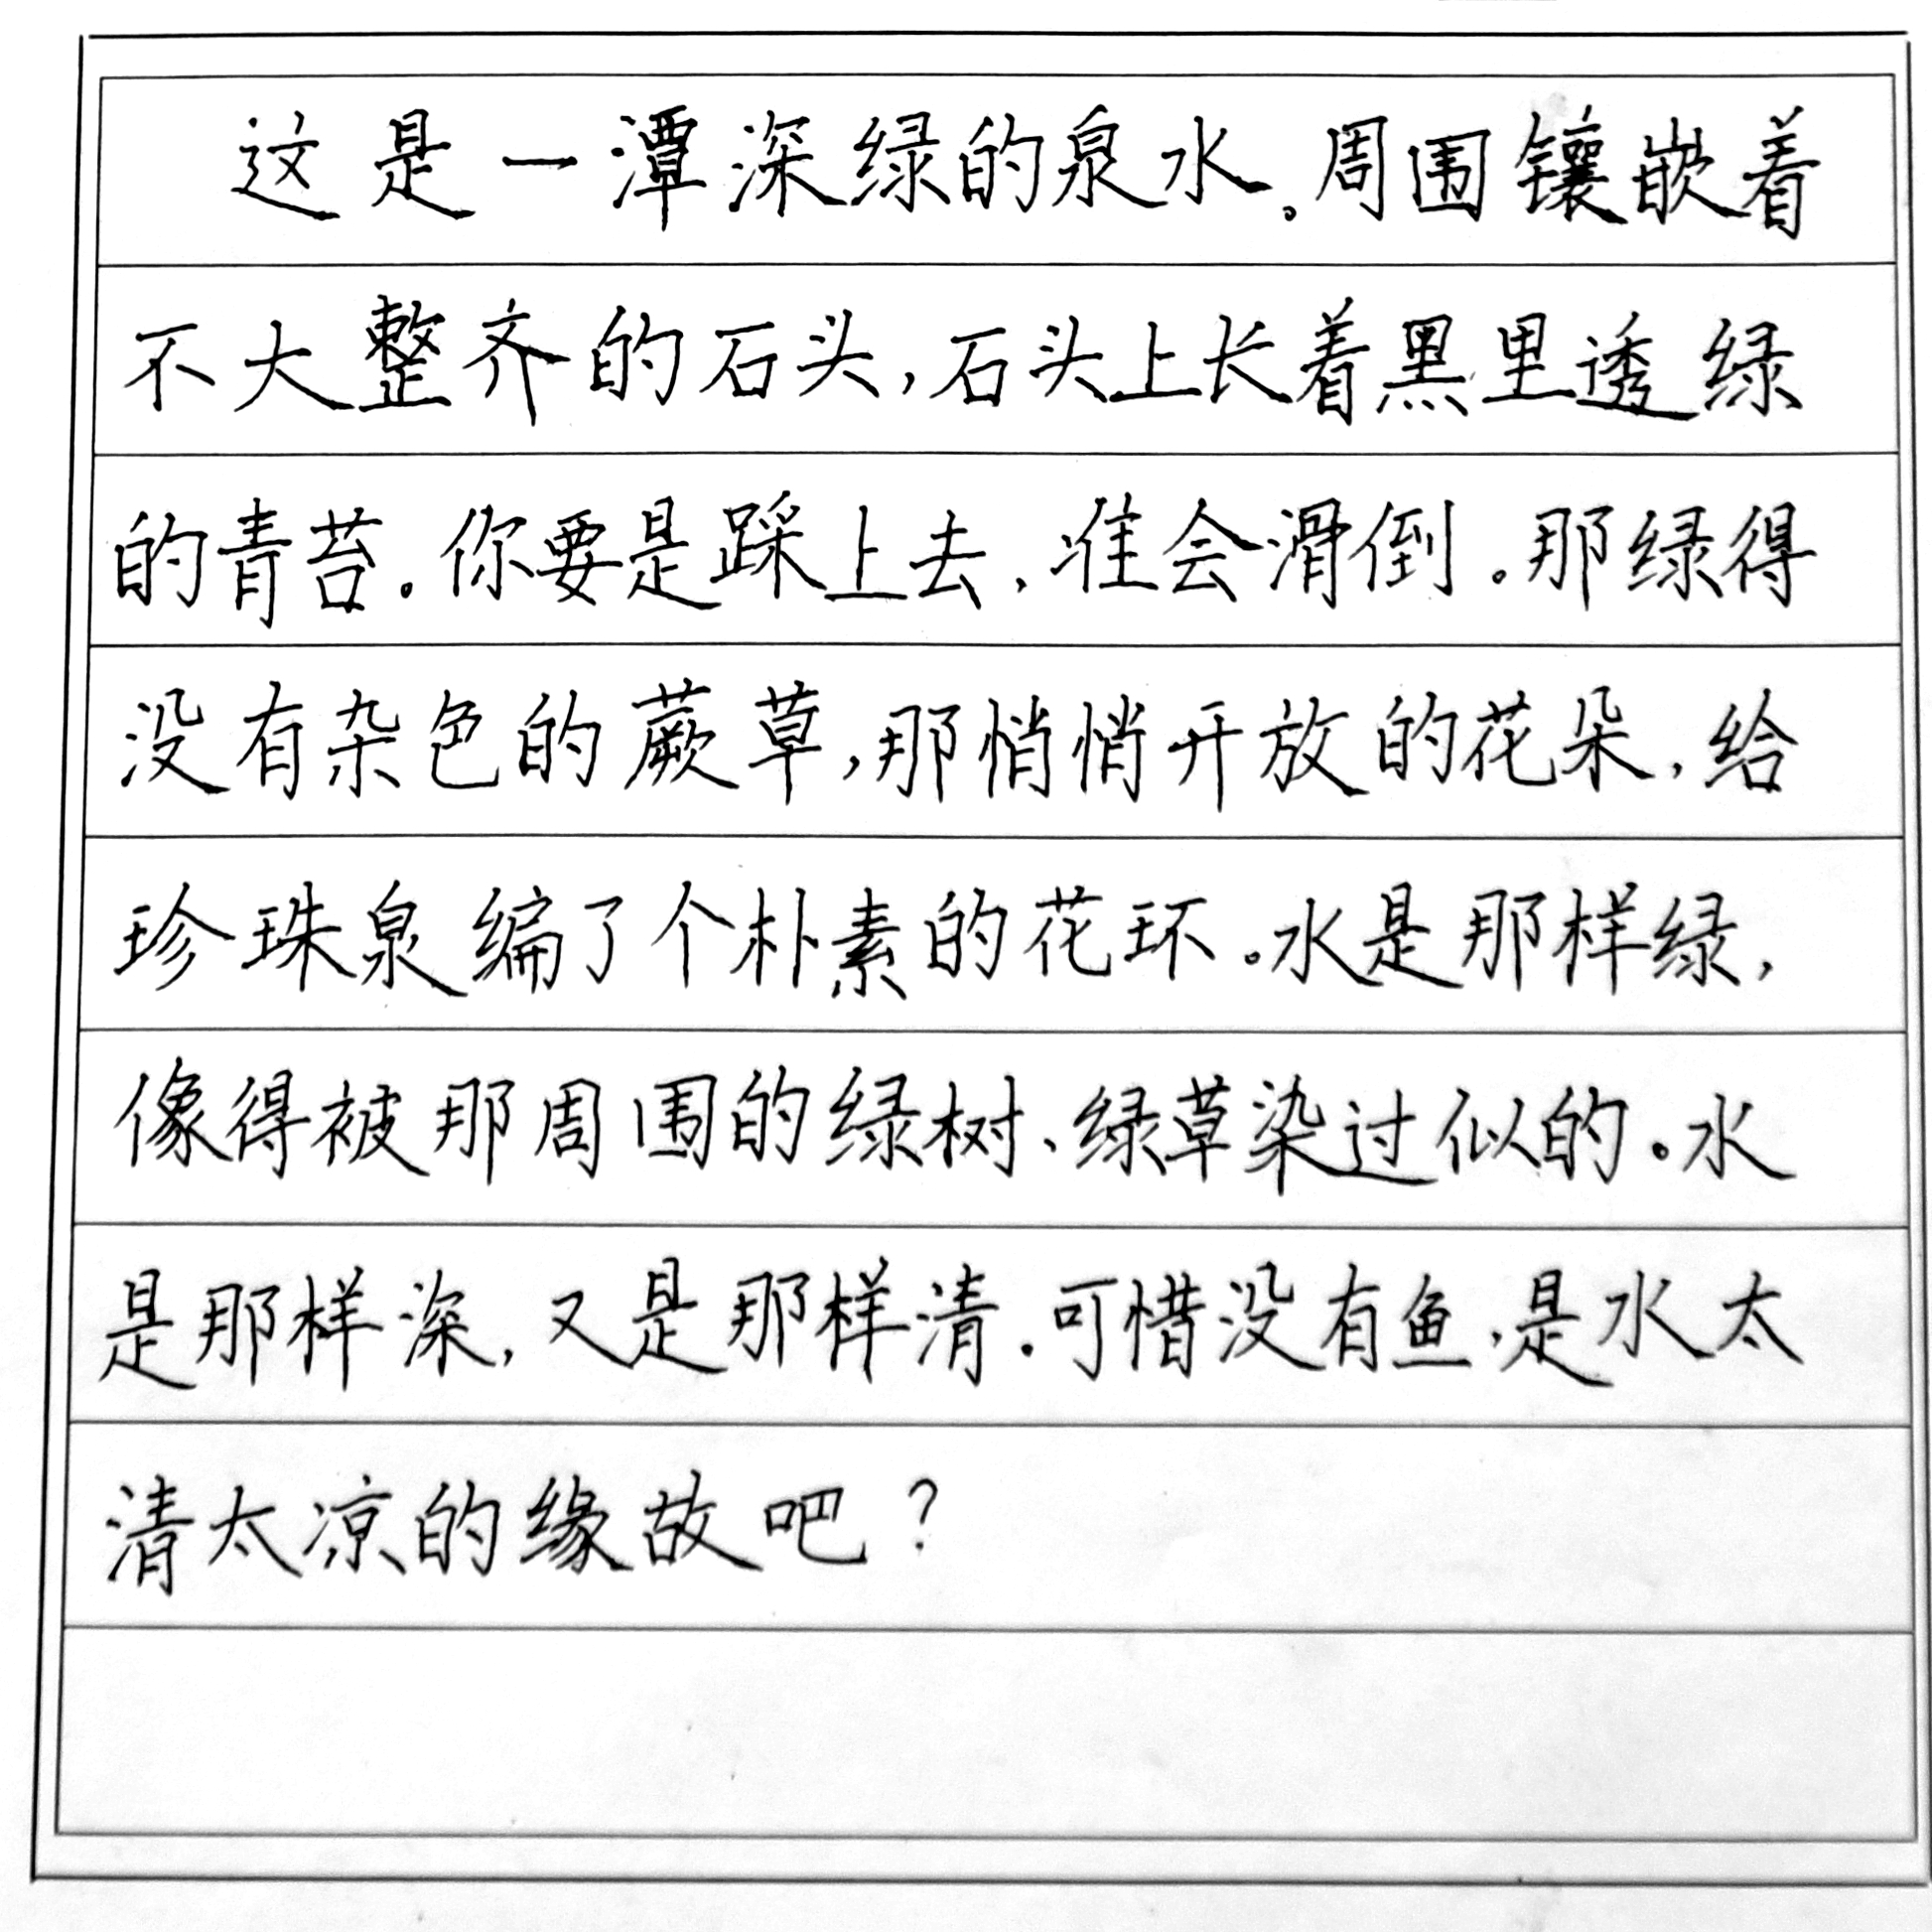 这是一潭深绿的泉水。周围镶嵌着
不大整齐的石头,石头上长着黑里透绿
的青苔。你要是踩上去,准会滑倒。那绿得
没有杂色的蕨草,那悄悄开放的花朵,给
珍珠泉编了个朴素的花环。水是那样绿,
像得被那周围的绿树、绿草染过似的。水
是那样深,又是那样清.可惜没有鱼,是水太
清太凉的缘故吧?